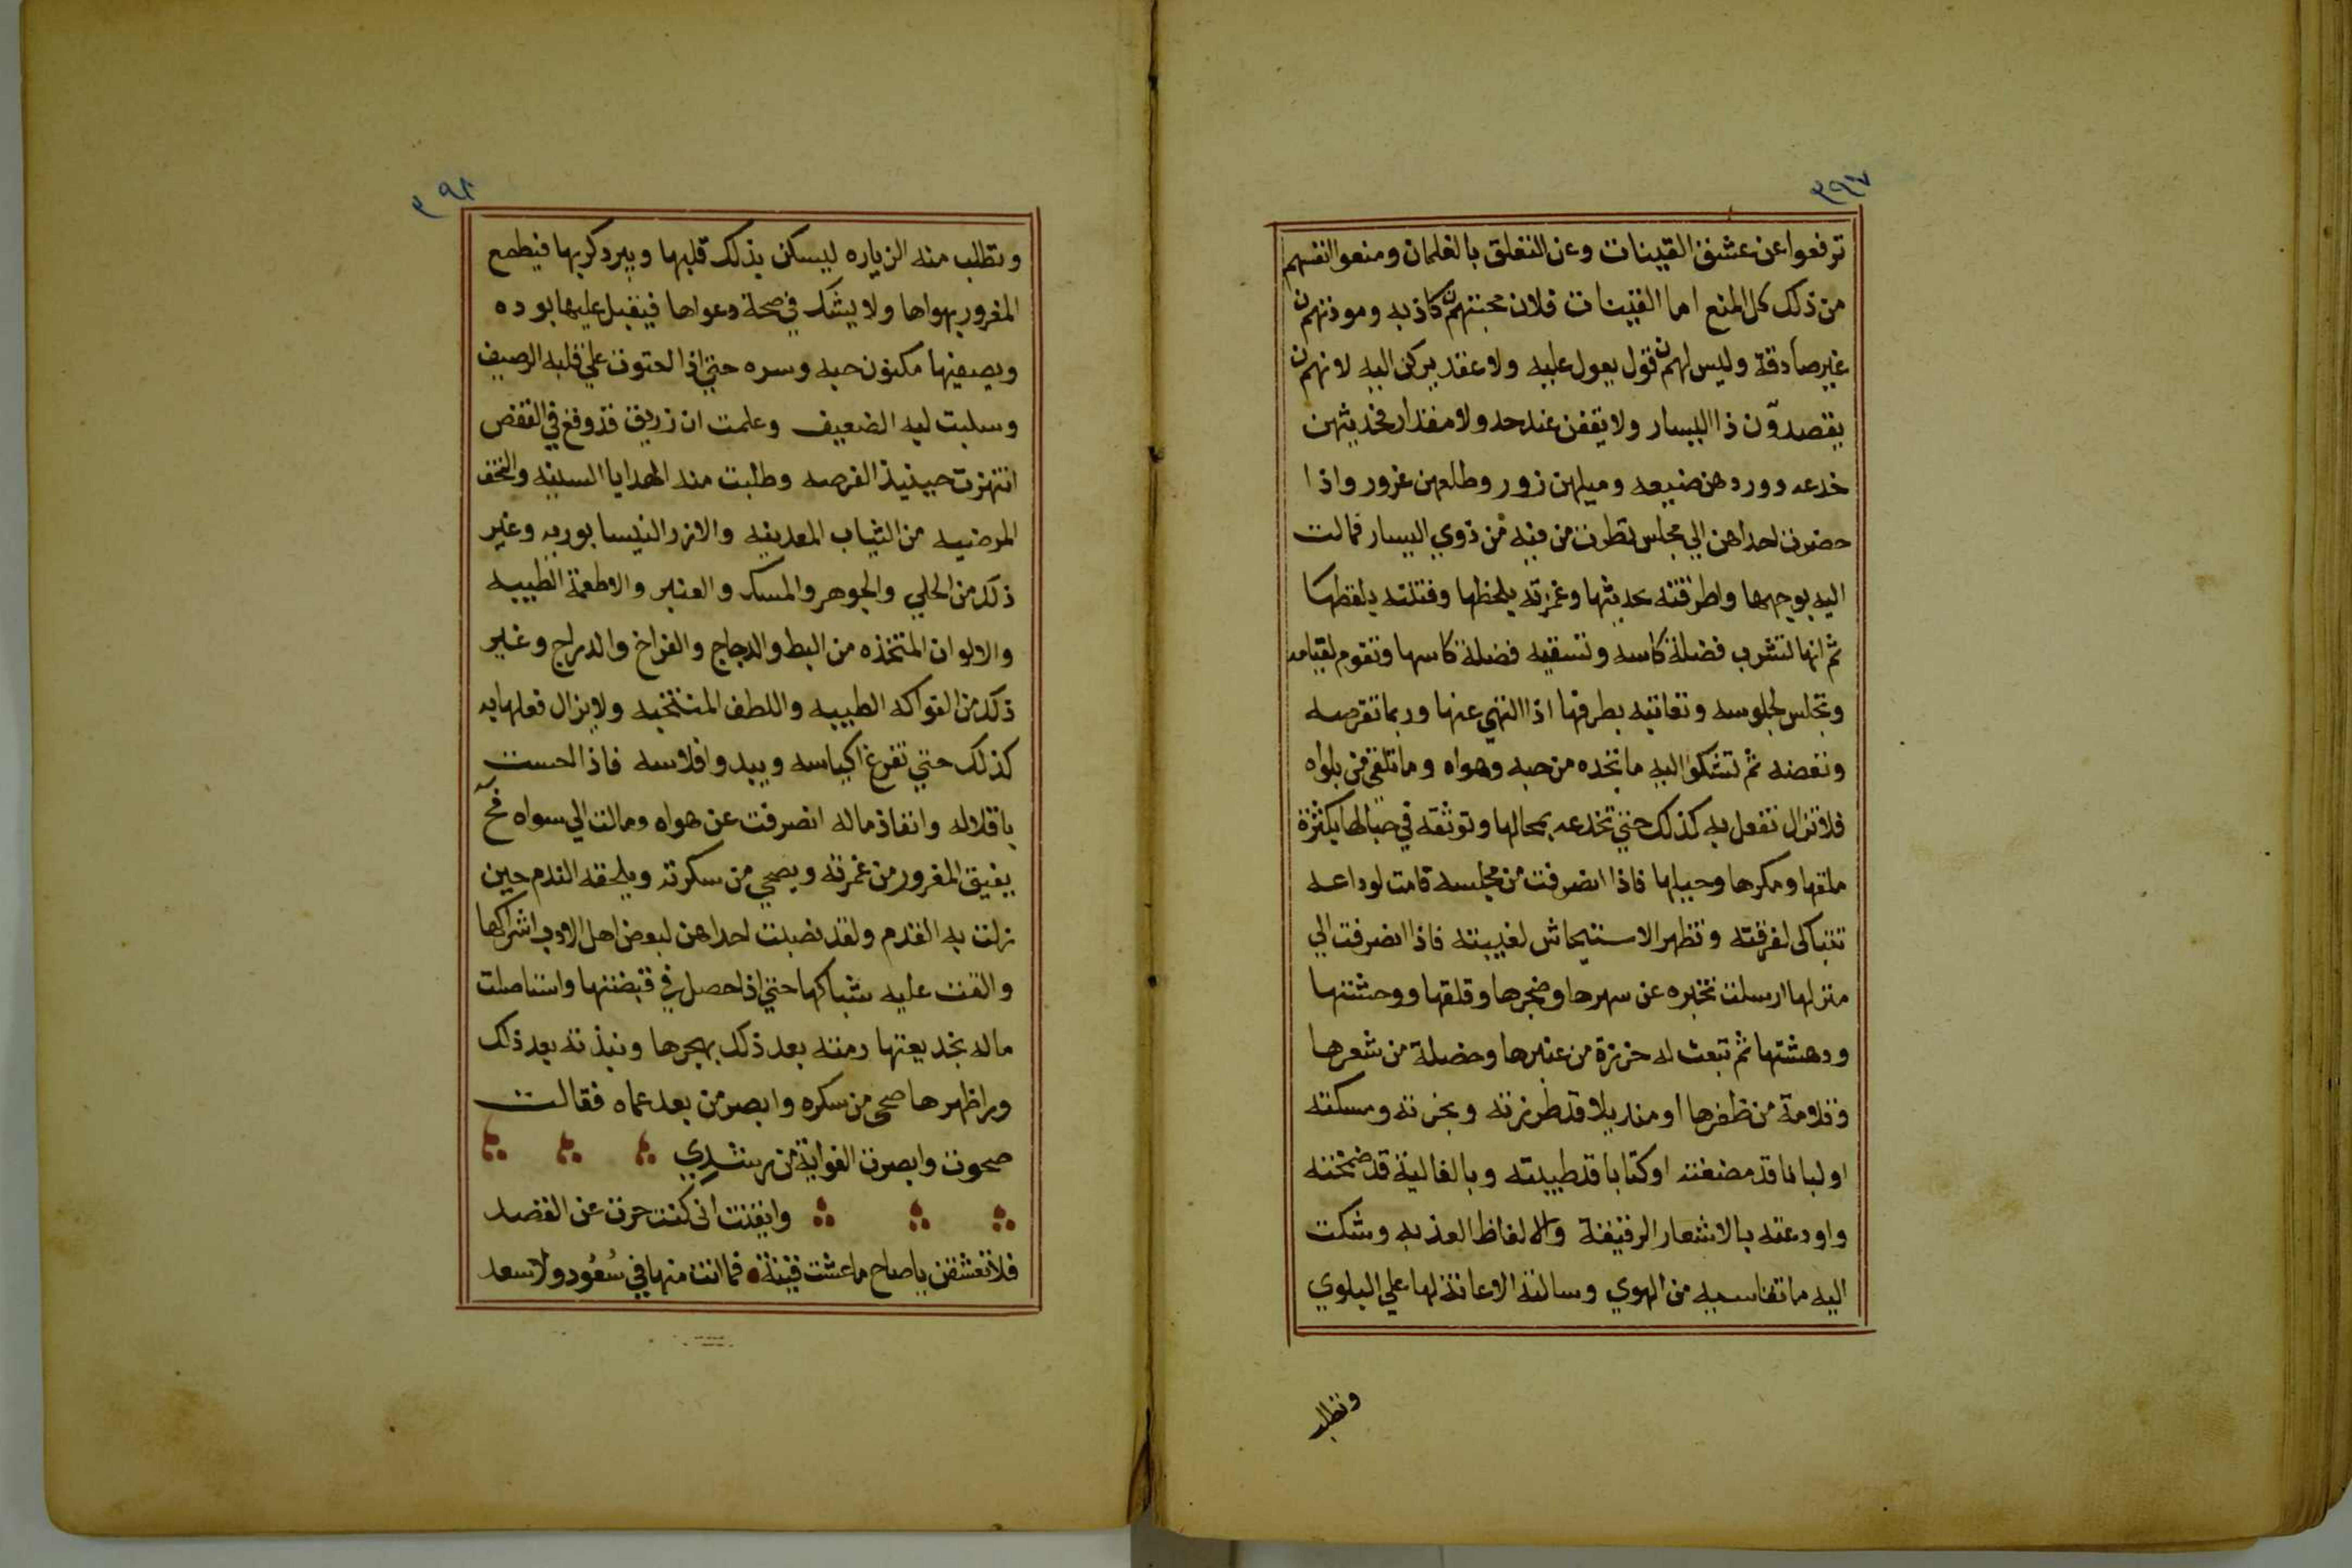 ٣٩٧
ترفعوا عن عشق القينات وعن التعلق بالغلمان ومنعوا انفسهم
من ذلك كل المنع اما القينات فلان محبتهن كاذبه ومودتهن
غير صادقة وليس لهن قول يعول عليه ولا عقد يركن اليه لانهن
يقصدون ذا اليسار ولا يقفن عند حد ولا مقدار فحديثهن
خدعه وورودهن ضيعه وميلهن زور وطلعهن غرور واذا
حضرت احداهن الي مجلس نظرت من فيه من ذوي اليسار فمالت
اليه بوجهها واطرفته بحديثها وغمزته بلحظها وفتلته بلفظها
ثم انها لتشرب فضلة كاسه وتسقيه فضلة كاسها وتقوم لقيامه
وتجلس لجلوسه وتعاتبه بطرفها اذا التهي عنها وربما تقرصه
وتعضه ثم تشكوا اليه ما تجده من حبه وهواه وما تلقي من بلواه
فلا تزال تفعل به كذلك حتي تخدعه بمحالها وتوثقه في حبالها بكثرة
ملقها ومكرها وحيلها فاذا انصرفت من مجلسه قامت لوداعه
تتباكي لفرقته وتظهر الاستيحاش لغيبته فاذا انصرفت الي
منزلها ارسلت تخبره عن سهرها وضجرها وقلقها ووحشتها
ودهشتها ثم تبعث له خرزة من عنبرها وخصلة من شعرها
وقلامة من ظفرها او منديلا قد طرزته وبخرته ومسكته
او لبانا قد مضغته او كتابا قد طيبته وبالغالية قد ضمخته
واودعته بالاشعار الرقيقة والالفاظ العذبه وشكت
اليه ما تقاسيه من الهوي وسالته الاعانة لها علي البلوي
وتطلب
٣٩٨
وتطلب منه الزياره ليسكن بذلك قلبها ويبرد كربها فيطمع
المغرور بهواها ولا يشك في صحة دعواها فيقبل عليها بوده
ويصفيها مكنون حبه وسره حتي اذا احتوت علي قلبه الرصيف
وسلبت لبه الضعيف وعلمت ان زريق قد وقع في القفص
انتهزت حينيذ الفرصه وطلبت منه الهدايا السنيه والتحف
المرضيه من الثياب المعدنيه والازر النيسابوريه وغير
ذلك من الحلي والجوهر والمسك والعنبر والاطعمة الطيبه
والالوان المتخذه من البط والدجاج والفراخ والدراج وغير
ذلك من الفواكه الطيبه واللطف المنتخبه ولا يزال فعلها به
كذلك حتي تفرغ اكياسه ويبدو افلاسه فاذا احست
باقلاله وانفاذ ماله انصرفت عن هواه ومالت الي سواه فح
يفيق المغرور من غمرته ويصحي من سكرته ويلحقه الندم حين
زلت به القدم ولقد نصبت احداهن لبعض اهل الادب اشراكها
والقت عليه شباكها حتي اذا حصل في قبضتها واستاصلت
ماله بخديعتها رمته بعد ذلك بهجرها ونبذته بعد ذلك
ورا ظهرها صحي من سكره وابصر من بعد عماه فقالت
صحوت وابصرت الغواية من رشدي
وايقنت اني كنت حرت عن القصد
فلا تعشقن يا صاح ما عشت قينة فما انت منها في سعود ولا سعد